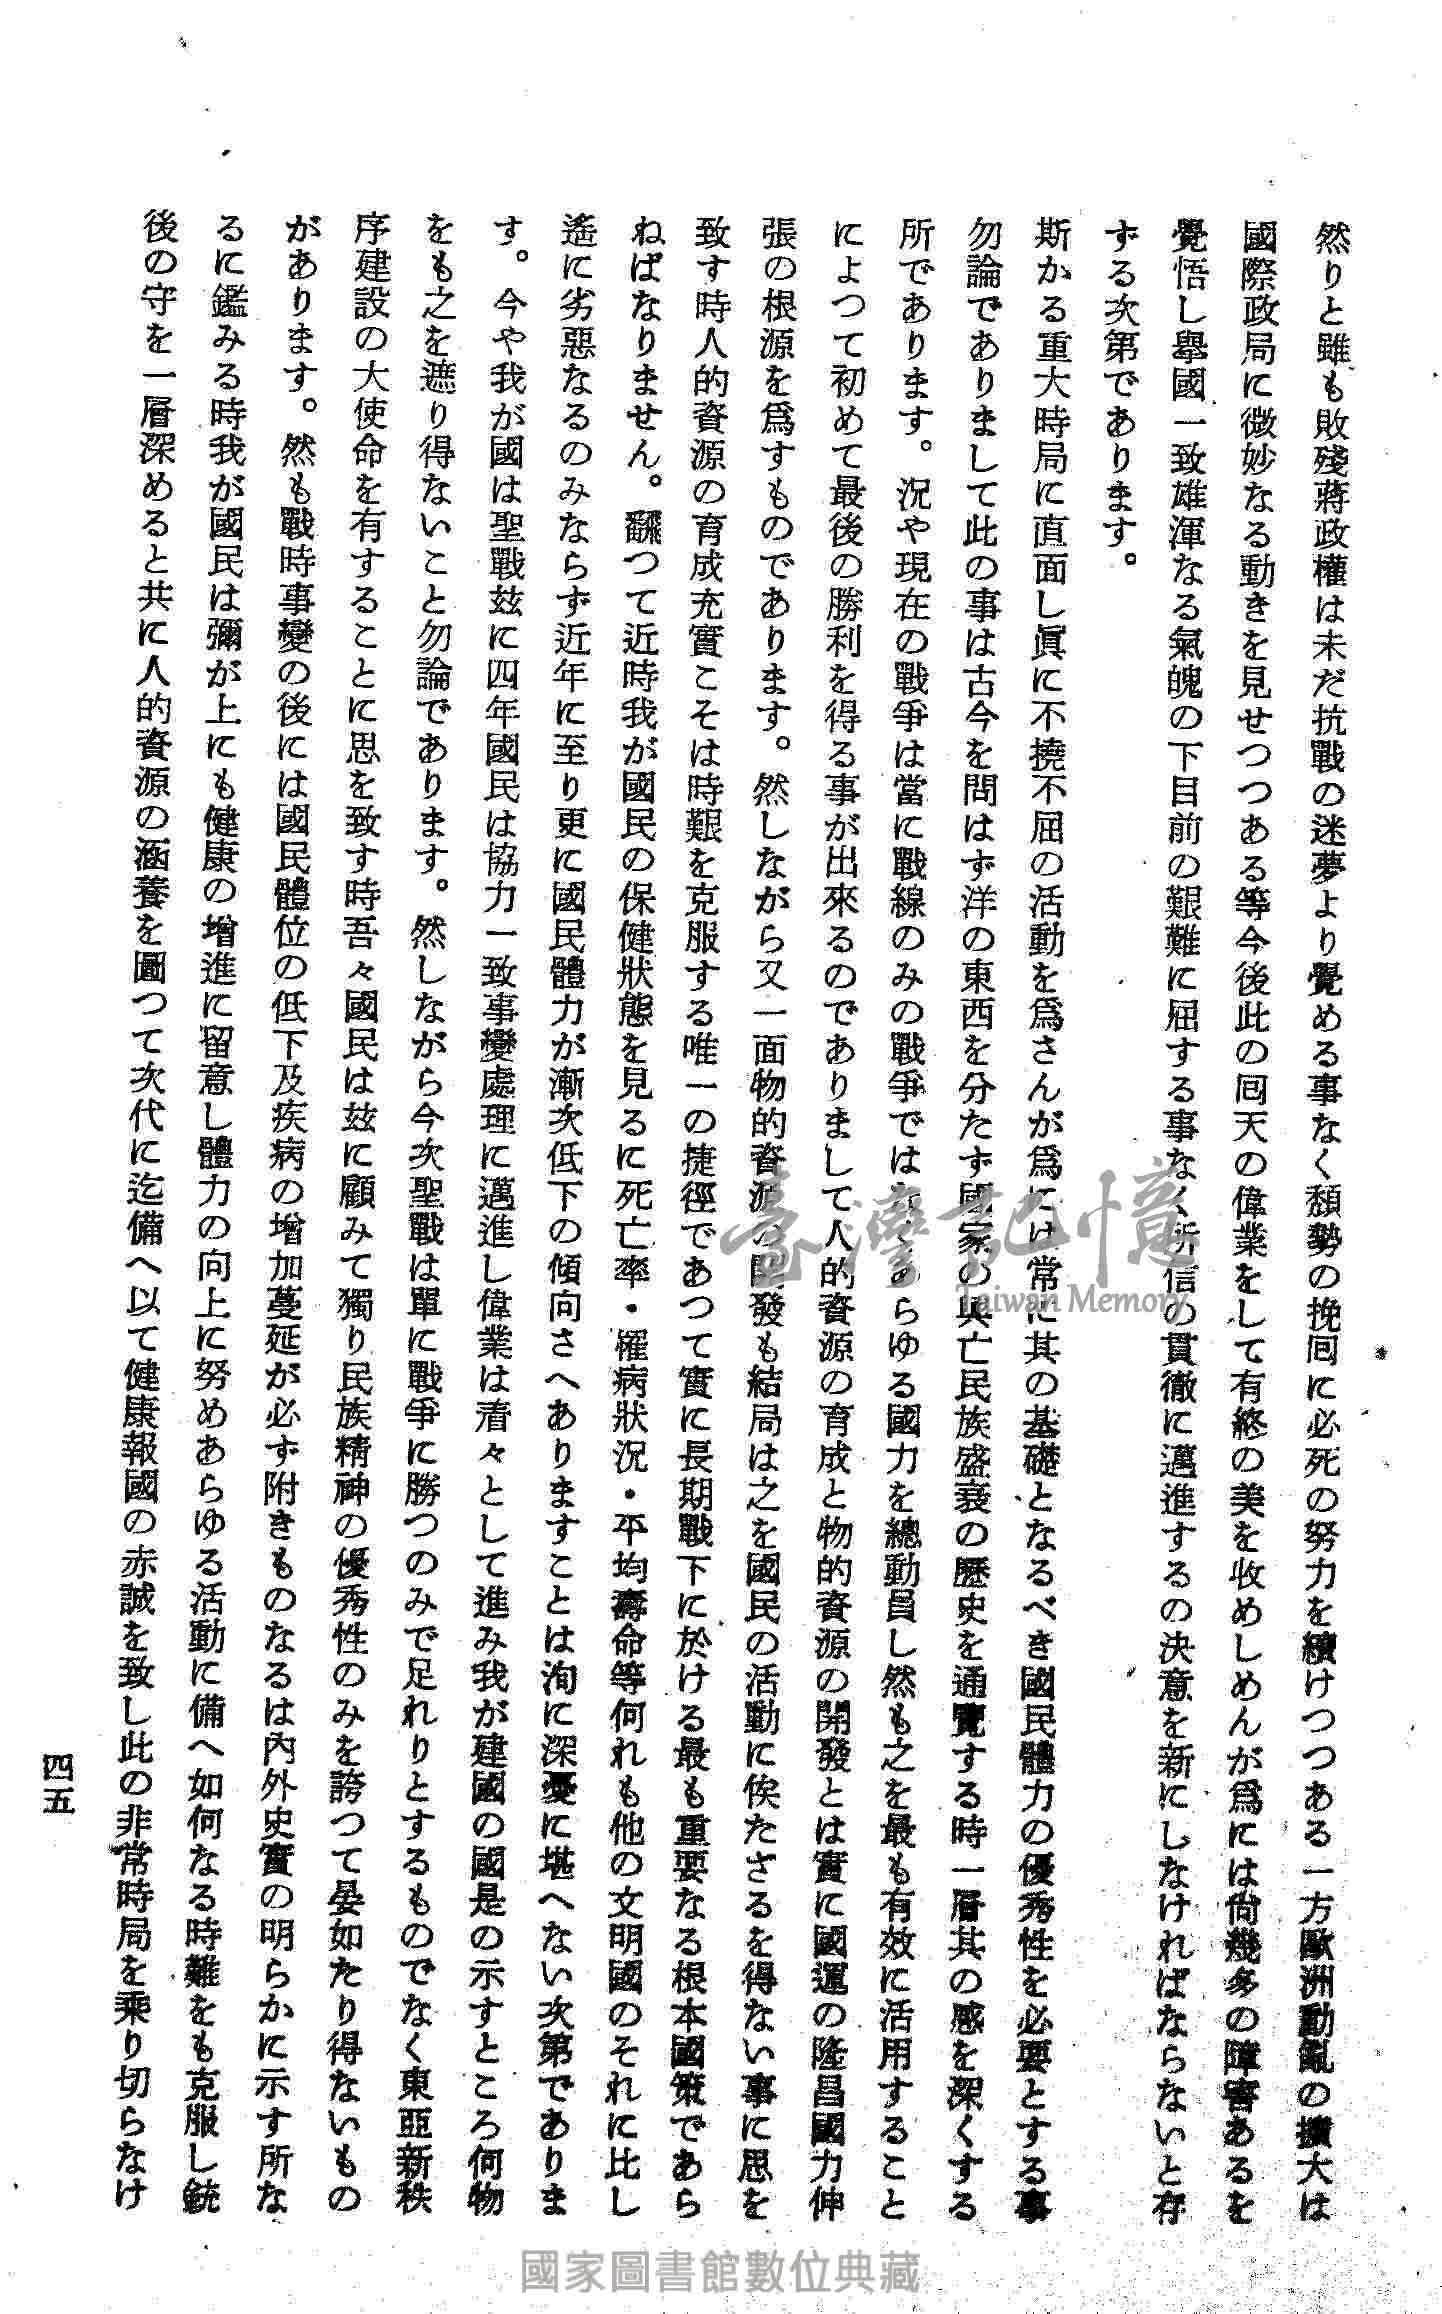 然りと雖も敗殘蔣政權は未だ抗戰の迷夢より覺める事なく頽勢の挽回に必死の努力を續けつつある一方歐洲動亂の擴大は
國際政局に微妙なる動きを見せつつある等今後此の回天の偉業をして有終の美を收めしめんが爲には尙幾多の障害あるを
覺悟し擧國一致雄渾なる氣魄の下目前の艱難に屈する事なく所信の貫徹に邁進するの決意を新にしなければならないと存
ずる次第であります。
斯かる重大時局に直面し眞に不撓不屈の活動を爲さんが爲には常に其の基礎となるべき國民體力の優秀性を必要とする事
勿論でありまして此の事は古今を問はず洋の東西を分たず國家の興亡民族盛衰の歷史を通覽する時一層其の感を深くする
所であります。況や現在の戰爭は當に戰線のみの戰爭ではなくあらゆる國力を總動員し然も之を最も有效に活用すること
によつて初めて最後の勝利を得る事が出來るのでありまして人的資源の育成と物的資源の開發とは實に國運の隆昌國力伸
張の根源を爲すものであります。然しながら又一面物的資源の開發も結局は之を國民の活動に俟たざるを得ない事に思を
致す時人的資源の育成充實こそは時艱を克服する唯一の捷徑であつて實に長期戰下に於ける最も重要なる根本國策であら
ねばなりません。飜つて近時我が國民の保健狀態を見るに死亡率・罹病狀況・平均壽命等何れも他の文明國のそれに比し
遙に劣惡なるのみならず近年に至り更に國民體力が漸次低下の傾向さへありますことは洵に深憂に堪へない次第でありま
す。今や我が國は聖戰玆に四年國民は協力一致事變處理に邁進し偉業は着々として進み我が建國の國是の示すところ何物
をも之を遮り得ないこと勿論であります。然しながら今次聖戰は單に戰爭に勝つのみで足れりとするものでなく東亞新秩
序建設の大使命を有することに思を致す時吾々國民は玆に顧みて獨り民族精神の優秀性のみを誇つて晏如たり得ないもの
があります。然も戰時事變の後には國民體位の低下及疾病の增加蔓延が必ず附きものなるは內外史實の明らかに示す所な
るに鑑みる時我が國民は彌が上にも健康の增進に留意し體力の向上に努めあらゆる活動に備へ如何なる時難をも克服し銃
後の守を一層深めると共に人的資源の涵養を圖つて次代に迄備へ以て健康報國の赤誠を致し此の非常時局を乘り切らなけ
四五
臺灣記憶
Taiwan Memory
國家圖書館數位典藏